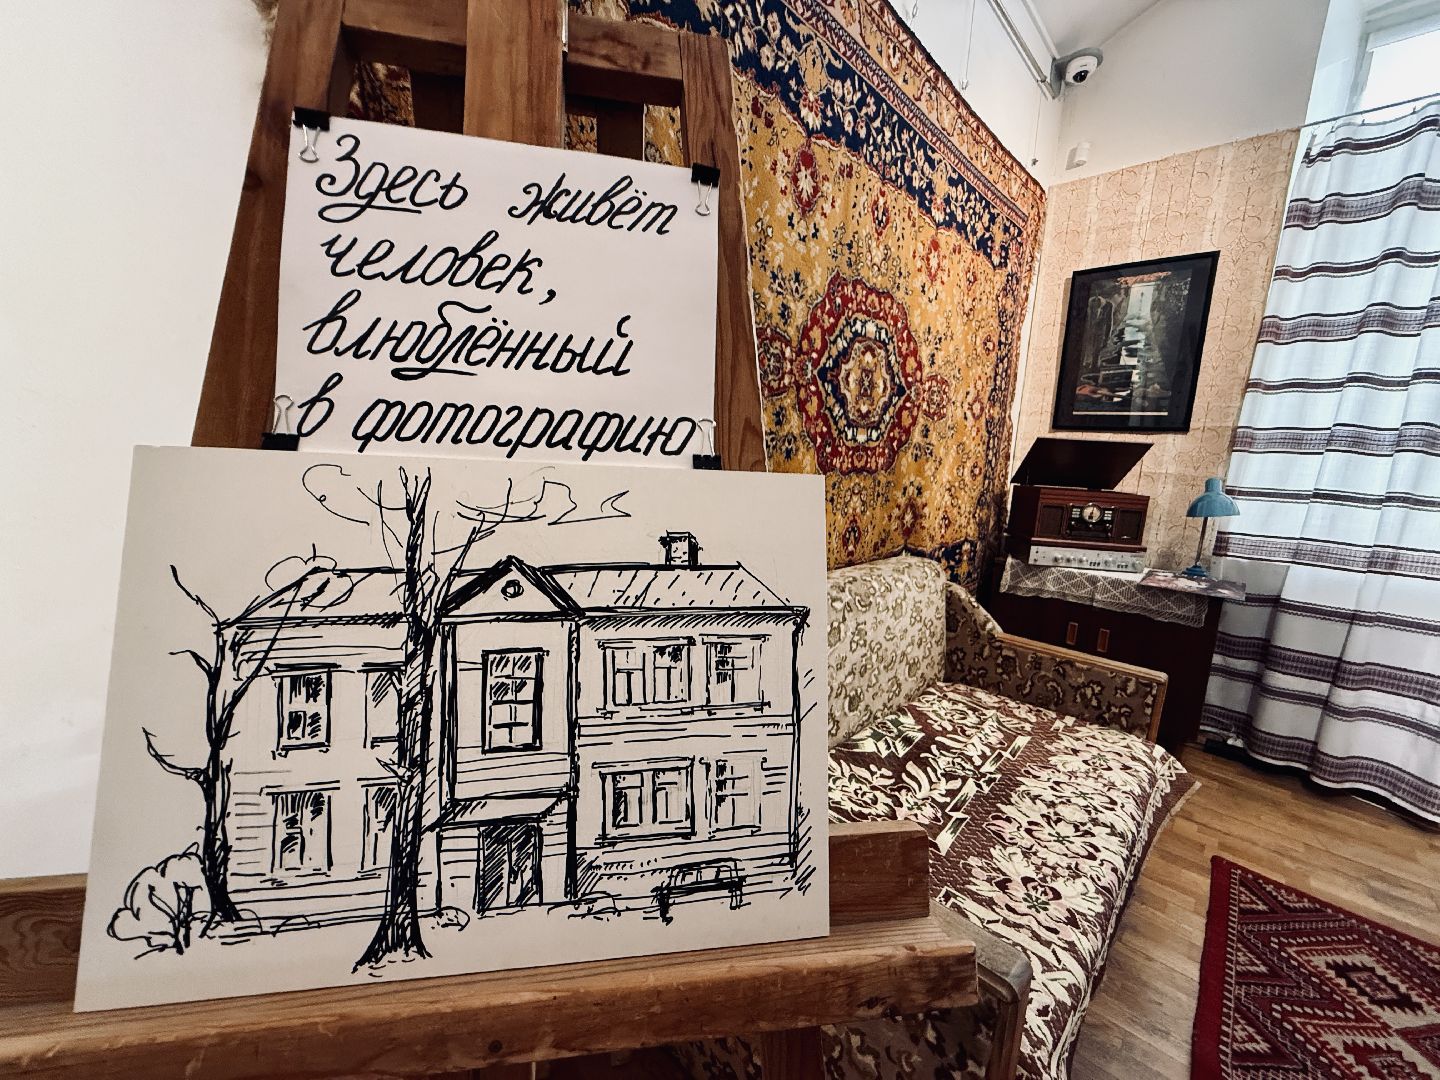 Здесь живёт
человек,
влюблённый
в фотографию